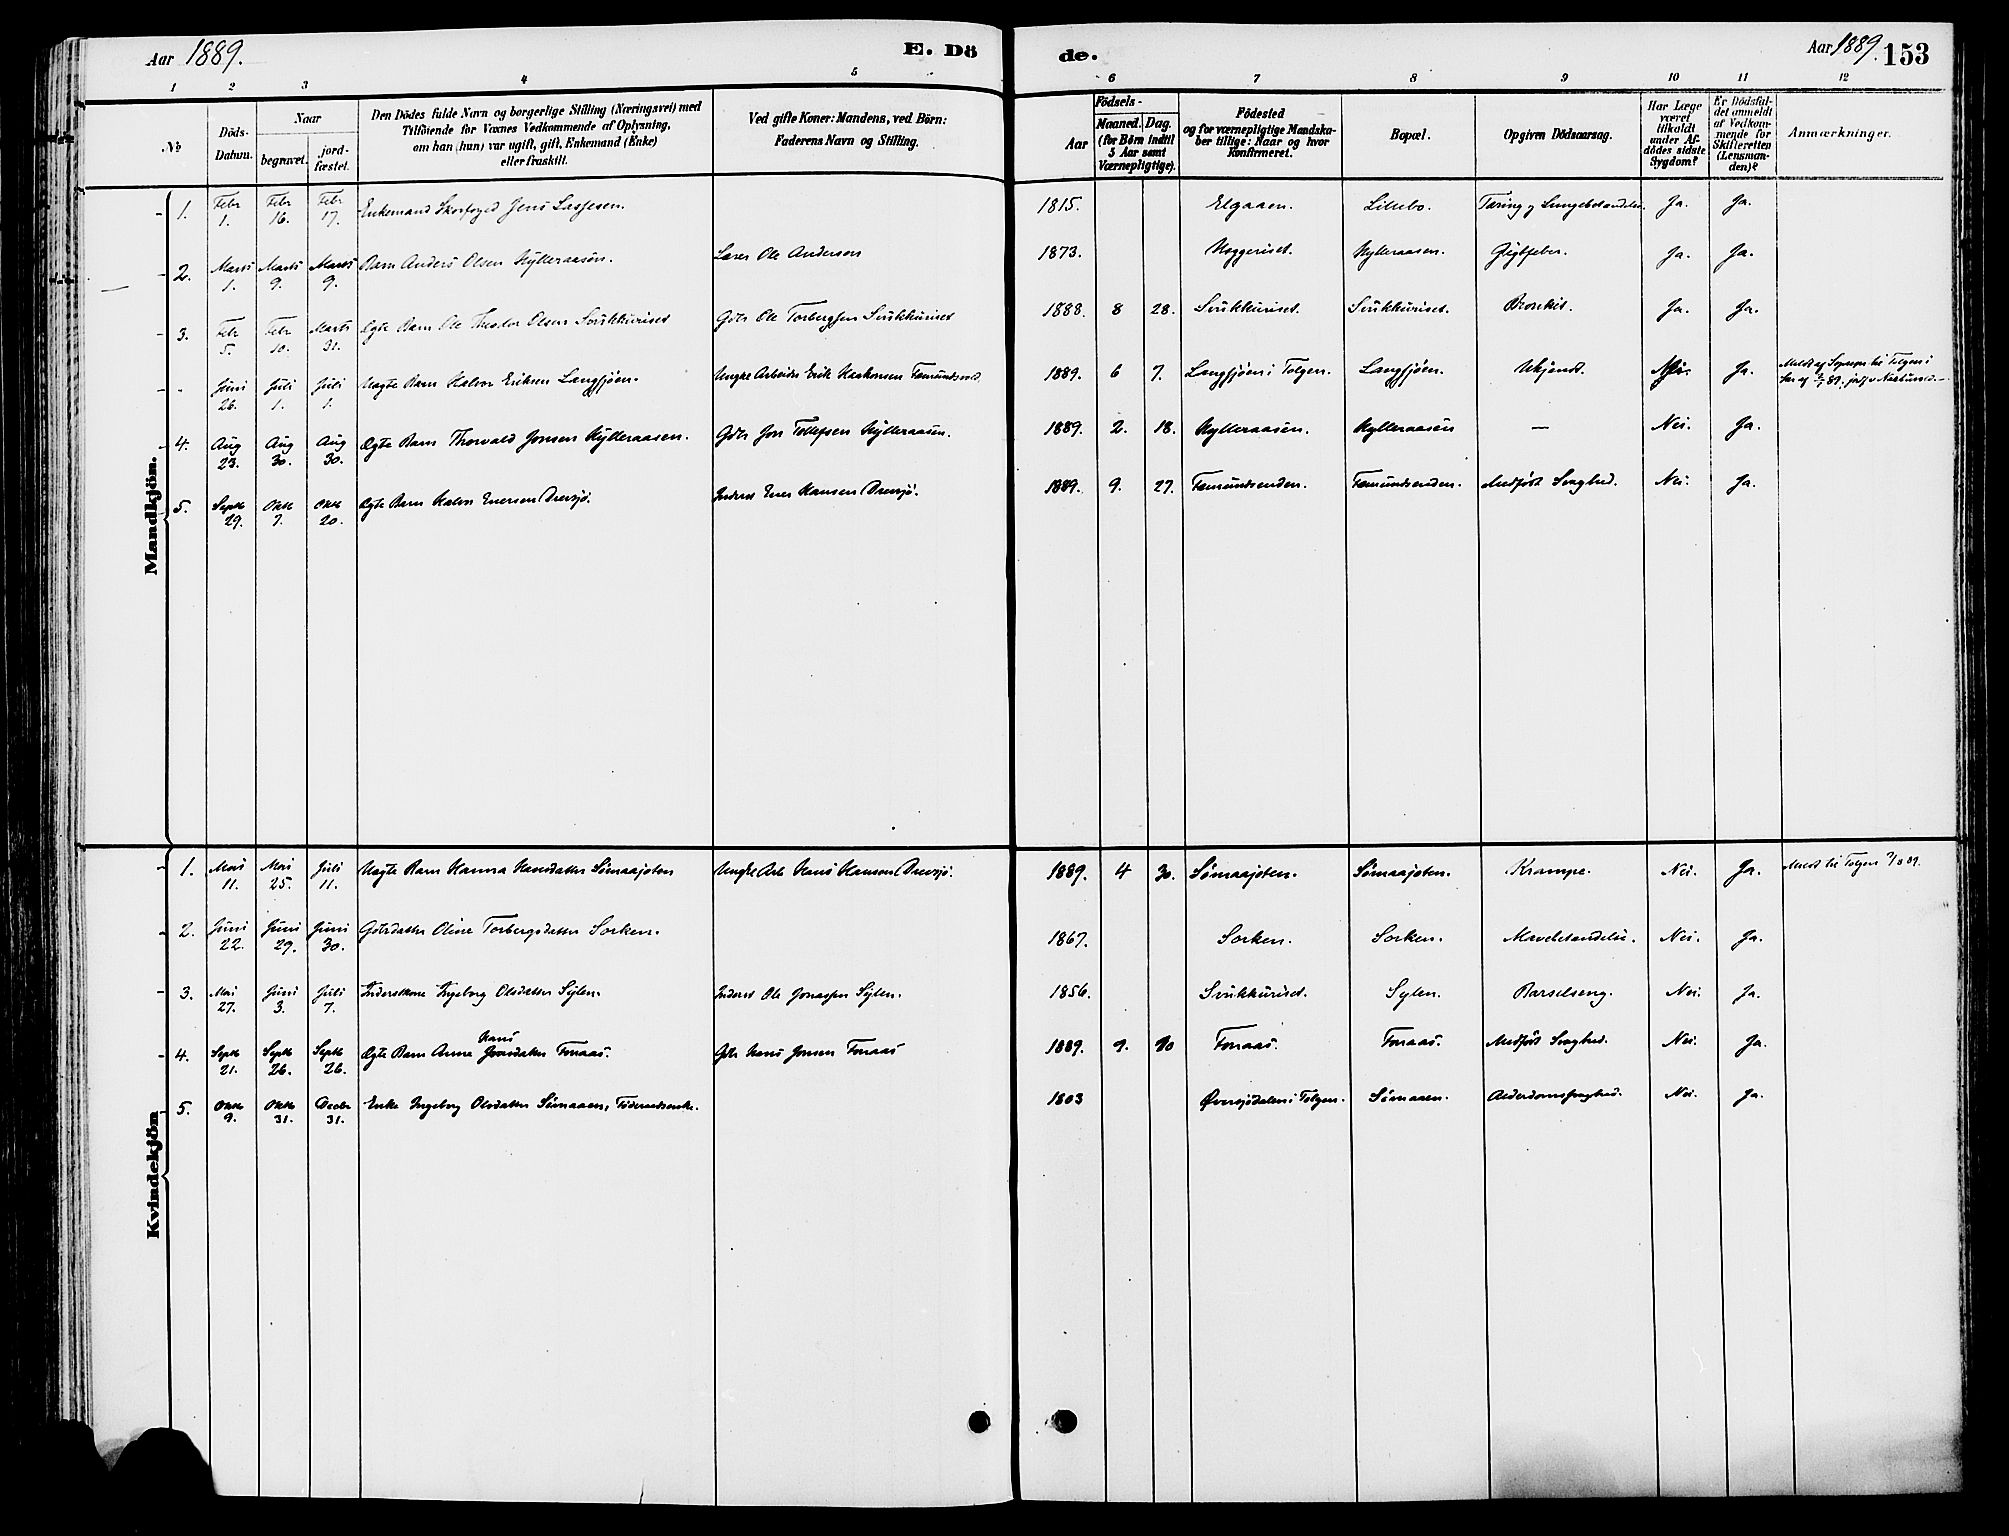 Aar 1889.
E. Dö
de.
Aar 1889. 153
1 2 3 4 5 6 7 8 9 10 11 12
No
Döds-
Datum.
Naar
begravet. jord-
fæstet.
Den Dödes fulde Navn og borgerlige Stilling (Næringsvei) med
Tilföiende for Voxnes Vedkommende af Oplysning,
om han (hun) var ugift, gift, Enkemand (Enke)
eller fraskilt.
Ved gifte Koner: Mandens, ved Börn:
Faderens Navn og Stilling.
Födsels-
Aar
Maaned. Dag.
(for Børn indtil
5 Aar samt
Værnepligtige).
Födested
og for værnepligtige Mandska-
ber tillige: Naar og hvor
Konfirmeret.
Bopæl.
Opgiven Dödsaarsag.
Har Læge
været
tilkaldt
under Af-
dödes sidste
Sygdom?
Er Dödsfal-
det anmeldt
af Vedkom-
mende for
Skifteretten
(Lensman-
den)?
Anmærkninger.
Mandkjön.
1. Febr 1. Febr 16. Febr 17. Enkemand Skovfoged Jens Lassesen. 1815. Elgaaen. Lillebo. Tæring Ja. Ja.
2. Marts 1. Marts 9. Marts 9. Barn Anders Olsen Hylleraasen. Ole Andersen 1873. Hylleraasen. Gigtfeber. Ja. Ja.
3. Febr 5. Febr 10. Marts 31. Ægte Barn Ole Olsen Svukkuriset Gbr Ole Torbergsen Svukkuriset 1888. 8 28. Svukkuriset. Svukkuriset. Bronkit. Ja. Ja.
Juni 26. Juli 1. Juli 1. Uægte Barn Halvor Eriksen Langsjøen. Ungke Arbeider Erik Haakonsen Fæmundsend. 1889. 6 7. Langsjøen i Tolgen. Langsjøen. Ukjendt. Nei. Ja.
4. Aug 23. Aug 30. Aug 30. Ægte Barn Thorvald Jonsen Hylleraasen. Gbr Jon Tollefsen Hylleraasen. 1889. 2. 18. Hylleraasen. Hylleraasen — Nei. Ja.
5. Septb 29. Oktb 7. Oktb 20. Ægte Barn Halvor Enersen Drevsjø. Inderst Ener Hansen Drevsjø. 1889. 9. 27. Fæmundsenden. Fæmundsenden. Medfødt Svaghed. Nei. Ja.
Kvindekjön
1. Mai 11. Mai 25. Juli 11. Uægte Barn Hanna Hansdatter Sømaajoten Ungke Arb Hans Hansen Drevsjø. 1889. 4 30. Sømaajoten. Sømaajoten. Krampe. Nei. Ja.
2. Juni 22. Juni 29. Juni 30. Gbrdatter Oline Torbergsdatter Sorken. 1867. Sorken. Sorken. Mavebetændelse. Nei. Ja.
3. Mai 27. Juni 3. Juli 7. Inderstkone Ingeborg Olsdatter Sylen. Inderst Ole Jonassen Sylen. 1856. Svukkuriset. Sylen. Barselseng. Nei. Ja.
Hans
4. Septb 21. Septb 26. Septb 26. Ægte Barn Anne Jonsdatter Fonaas. Gbr Hans Jonsen Fonaas 1889. 9. 20 Fonaas. Fonaas. Medfødt Svaghed. Nei. Ja.
5. Oktb 9. Oktb 31. Decbr 31. Enke Ingeborg Olsdatter Sømaaen, Føderaadsenke. 1803 Øversjødalen i Tolgen. Sømaaen. Alderdomssvaghed. Nei. Ja.